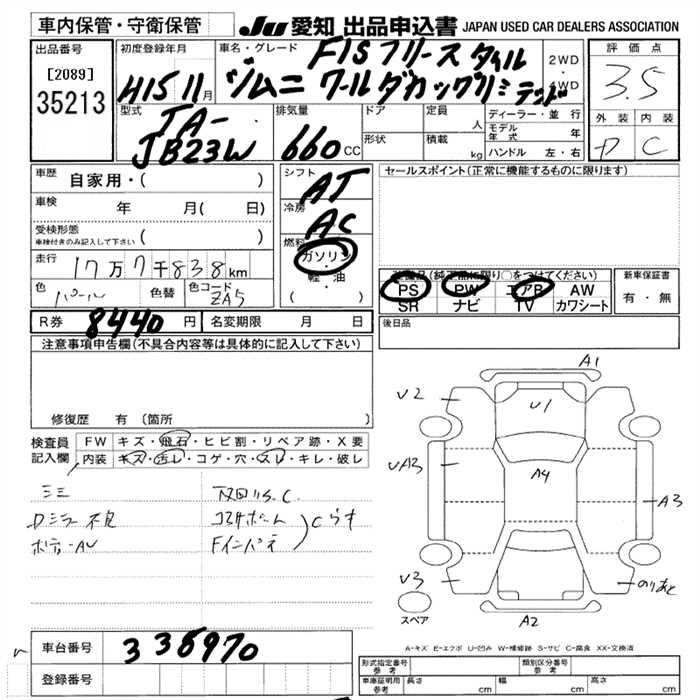 車内保管・守衛保管
JU 愛知 出品申込書 JAPAN USED CAR DEALERS ASSOCIATION
出品番号
[2089]
35213
初度登録年月
H15 11月
車名・グレード
FISフリースタイル
ジムニ ワールドカップリミテッド
2WD
・
4WD
評価点
3.5
外装 内装
D C
型式
TA-
JB23W
排気量
660cc
ドア
形状
定員
人
積載
kg
ディーラー・並行
モデル年式 年
ハンドル 左・右
車歴
自家用・( )
車検
年 月( 日)
受検形態
車検付きのみ記入して下さい ( )
走行
17万7千838km
色
パール
色替
色コード
ZA5
シフト
AT
冷房
AC
燃料
ガソリン
・
軽・油
( )
セールスポイント(正常に機能するものに限ります)
装備品(純正品に限り○をつけてください)
PS PW エアB AW
SR ナビ TV カワシート
新車保証書
有・無
R券 8440円 名変期限 月 日
後日品
注意事項申告欄(不具合内容等は具体的に記入して下さい)
修復歴 有(箇所 )
検査員
記入欄
FW キズ・飛石・ヒビ割・リペア跡・X要
内装 キズ・汚レ・コゲ・穴・スレ・キレ・破レ
ミミ
Dミラー不良
ボディーAU
コアサポート
Fインパネ
Cらす
A1
U2
U1
UA3
A4
A3
U3
のりあと
A2
スペア
A-キズ E-エクボ U-凹み W-補修跡 S-サビ C-腐食 XX-交換済
車台番号 336970
登録番号
形式指定番号
参考
類別区分番号
参考
車庫証明用
参考
長さ cm 幅 cm 高さ cm